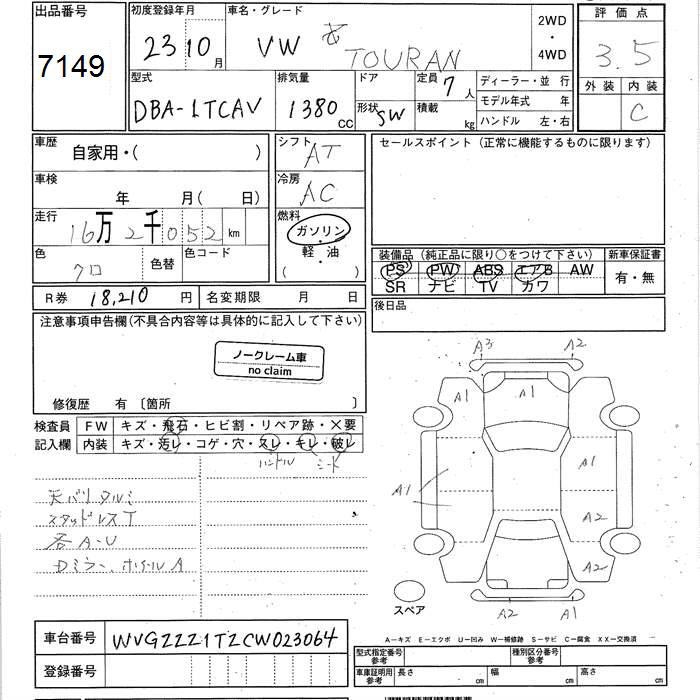 出品番号
7149
初度登録年月
23 10 月
車名・グレード
VW TOURAN
2WD
・
4WD
評価点
3.5
外装 内装
C
型式
DBA-1TCAV
排気量
1380 CC
ドア
形状 SW
定員 7 人
積載 kg
ディーラー・並 行
モデル年式 年
ハンドル 左・右
車歴
自家用・( )
シフト
AT
セールスポイント (正常に機能するものに限ります)
車検
年 月( 日)
冷房
AC
走行
16万 2千 052 km
燃料
ガソリン
・
軽・油
( )
色
クロ
色替
色コード
装備品 (純正品に限り○をつけて下さい)
PS PW ABS エアB AW
SR ナビ TV カワ
新車保証書
有・無
R券 18,210 円
名変期限 月 日
後日品
注意事項申告欄(不具合内容等は具体的に記入して下さい)
ノークレーム車
no claim
修復歴 有 〔箇所 〕
検査員
記入欄
FW キズ・飛石・ヒビ割・リペア跡・×要
内装 キズ・汚レ・コゲ・穴・スレ・キレ・破レ
ハンドル シート
天バリタルミ
スタッドレスT
各A-U
Dミラー、ホイールA
A3 A2
A1
A1
A1
A2
A2
A2 A1
スペア
車台番号 WVGZZZ1TZCW023064
登録番号
A－キズ E－エクボ U－凹み W－補修跡 S－サビ C－腐食 XX－交換済
型式指定番号
参考
種別区分番号
参考
車庫証明用
参考
長さ cm 幅 cm 高さ cm